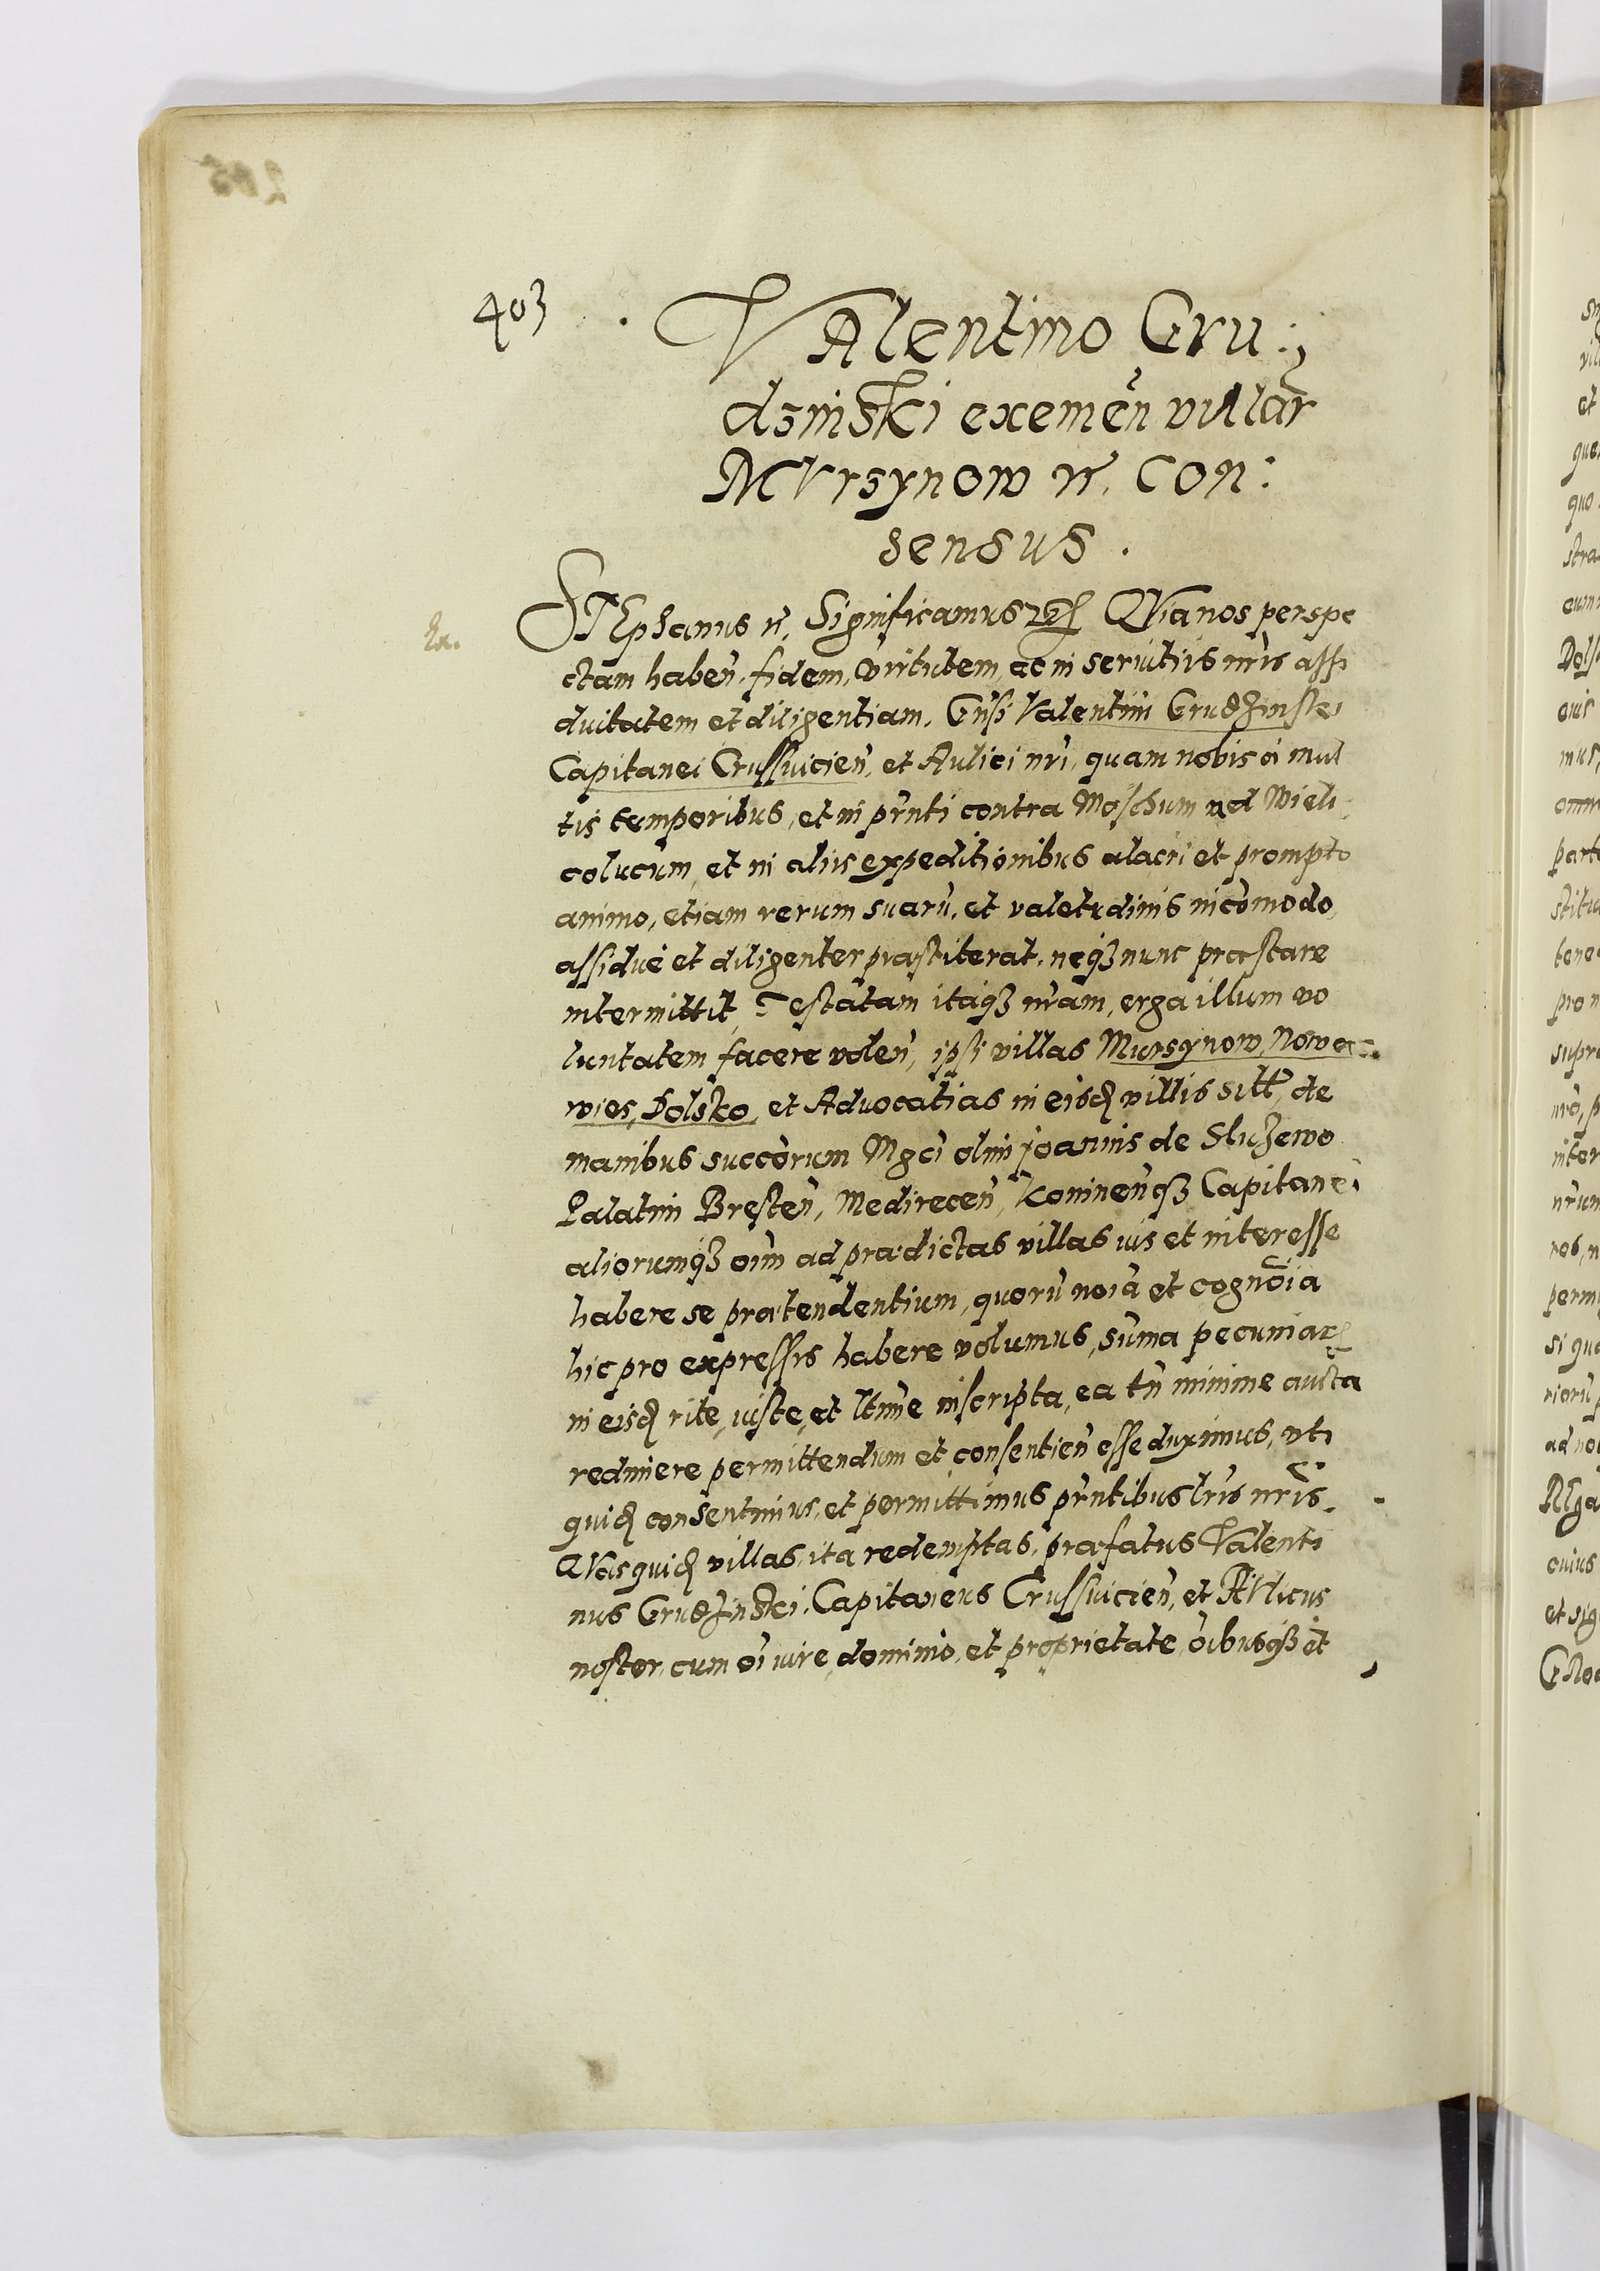 403
VAlentino Gru:,
dsinski exemen̄ villar̄
MVrsynow etc. Con:
sensus.
Ex.
STEphanus etc. Significamus etc. QVia nos perspe
ctam haben̄. fidem, virtutem, ac in seruitiis nr̄is assi
duitatem et diligentiam, Gn̄si Valentini Grudzinski
Capitanei Crussuicien̄, et Aulici nr̄i, quam nobis a mul
tis temporibus, et in pr̄nti contra Moschum ad Wieli
colucum, et in aliis expeditionibus alacri et prompto
animo, etiam rerum suarū, et valetudinis incōmodo,
assidué et diligenter præstiterat, neq3 nunc præstare
intermittit, Testatam itaq3 nr̄am, erga illum vo
luntatem facere volen̄, ipsi villas Mursynow, Nowa
wies, Dolsko, et Advocatias in eisd villis sitt̄, de
manibus succōrum Mgci olim Joannis de Sluzewo
Palatini Bresten̄, Medirecen̄, Koninen̄q3 Capitanei
aliorumq3 oīm ad prædictas villas ius et interesse
habere se prætendentium, quorū noīa et cognoīa
hic pro expressis habere volumus, sum̄a pecuniar
in eisd rite, iuste, et ltīme inscripta, ea tn̄ minime aucta
redimere permittendum et consentien̄ esse duximus, uti
quid consentimus, et permittimus pr̄ntibus lr̄is nr̄is.
QVas quid villas, ita redemptas, præfatus Valenti
nus Grudzinski, Capitaneus Crussuicien̄, et AVlicus
noster, cum oī iure, dominio, et proprietate, oībusq3 et